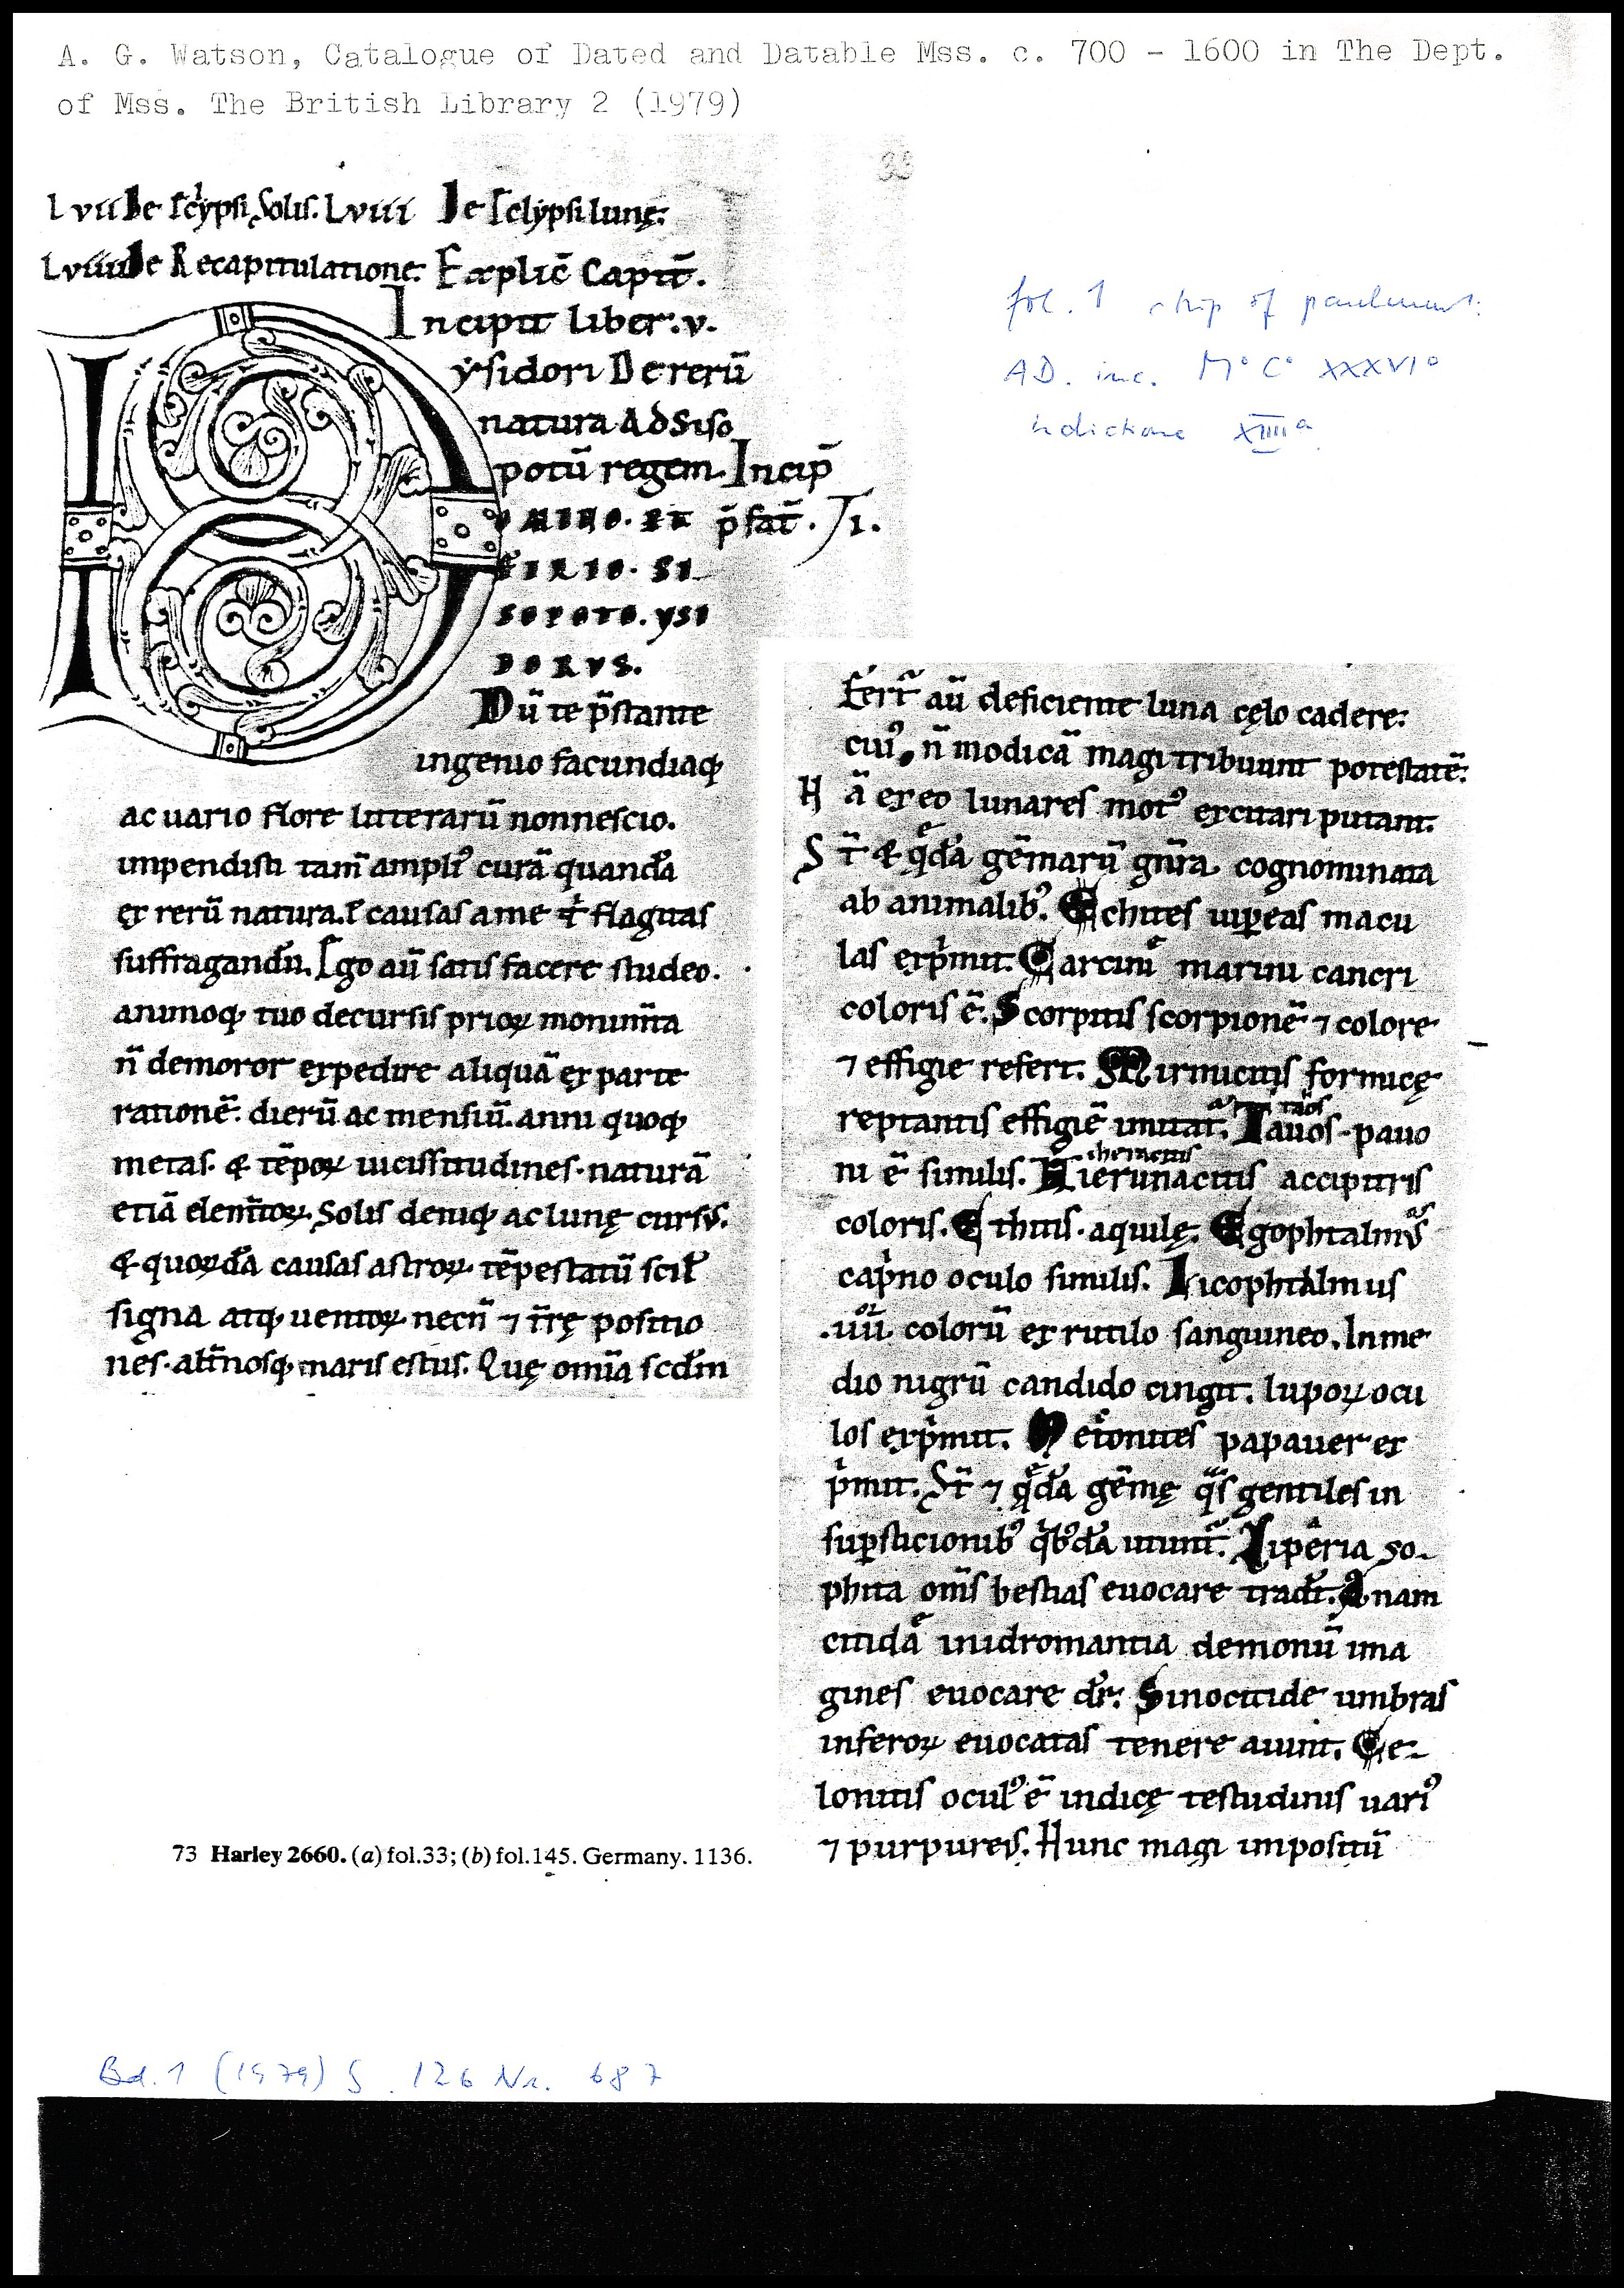 A. G. Watson, Catalogue of Dated and Datable Mss. c. 700 - 1600 in The Dept.
of Mss. The British Library 2 (1979)
33
Lvii De sclypsi Solis. Lviii De sclypsi lunę:
Lviiii De Recapitulatione: Explic̄ Capit̄.
Incipit liber. v.
ysidori De rerū
natura Ad Siso
potū regem. Incip̄
OMINO. ET p̄fat̄. I.
FILIO. SI
SOPOTO. YSI
DORVS.
Dū te p̄stante
ingenio facundiaq;
ac uario flore litterarū nonnescio.
inpendisti tam̄ ampli᾽ curā quandā
ex rerū natura. ł causas a me t̄ flagitas
suffragandū. Ego aū satis facere studeo.
animoq; tuo decursis prioꝝ monum̄ta
n̄ demoror expedire aliquā ex parte
rationē: dierū ac mensiū. anni quoq;
metas. & tēpoꝝ uicissitudines. naturā
etiā elem̄toꝝ. Solis deniq; ac lunę cursꝰ.
& quoꝝdā causas astroꝝ. tēpestatū scil᾽
signa atq; uentoꝝ. necn̄ ⁊ t̄rę positio
nēs. alt̄nosq; maris estus. Quę omīa scd̄m
fol. 1 strip of parchment:
AD. inc. M° C° XXXVI°
indictione XIIIIa
Fert᾽ aū deficiente luna cęlo cadere:
cuiꝰ, n̄ modicā magi tribuunt potestatē:
Nā ex eo lunares motꝰ excitari putant.
St̄ & q̄dā gēmarū gn̄ra cognominata
ab animalibꝰ. Echites uiꝑeas macu
las exp̍mit. Carcini marini cancri
coloris ē. Scorpitis scorpionē ⁊ colore
⁊ effigie refert. Mirmicitis formicę
reptantis effigiē imitat᾽. Taos
Tauos. pauo
ni ē similis. Hierunacitis accipitris
coloris. Ethitis. aquilę. Egophtalmꝰ
cap̍no oculo similis. Licophtalmus
.iiii. colorū ex rutilo sanguineo. In me
dio nigrū candido cingit. lupoꝝ ocu
los exp̍mit. Meconites papauer ex
p̍mit. St̄ ⁊ q̄dā gēmę q̄s gentiles in
suꝑsticionibꝰ q̍bꝰdā utunt᾽. Liperia so-
phita om̄s bestias euocare tradt᾽. Anam
citidā in idromantia demonū ima
gines euocare dr̄. Sinocitide umbras
inferoꝝ euocatas tenere aiunt. Ce-
lonitis oculꝰ ē indicę testudinis uariꝰ
⁊ purpureꝰ. Hunc magi impositū
73 Harley 2660. (a) fol.33; (b) fol.145. Germany. 1136.
Bd. 1 (1979) S. 126 Nr. 687